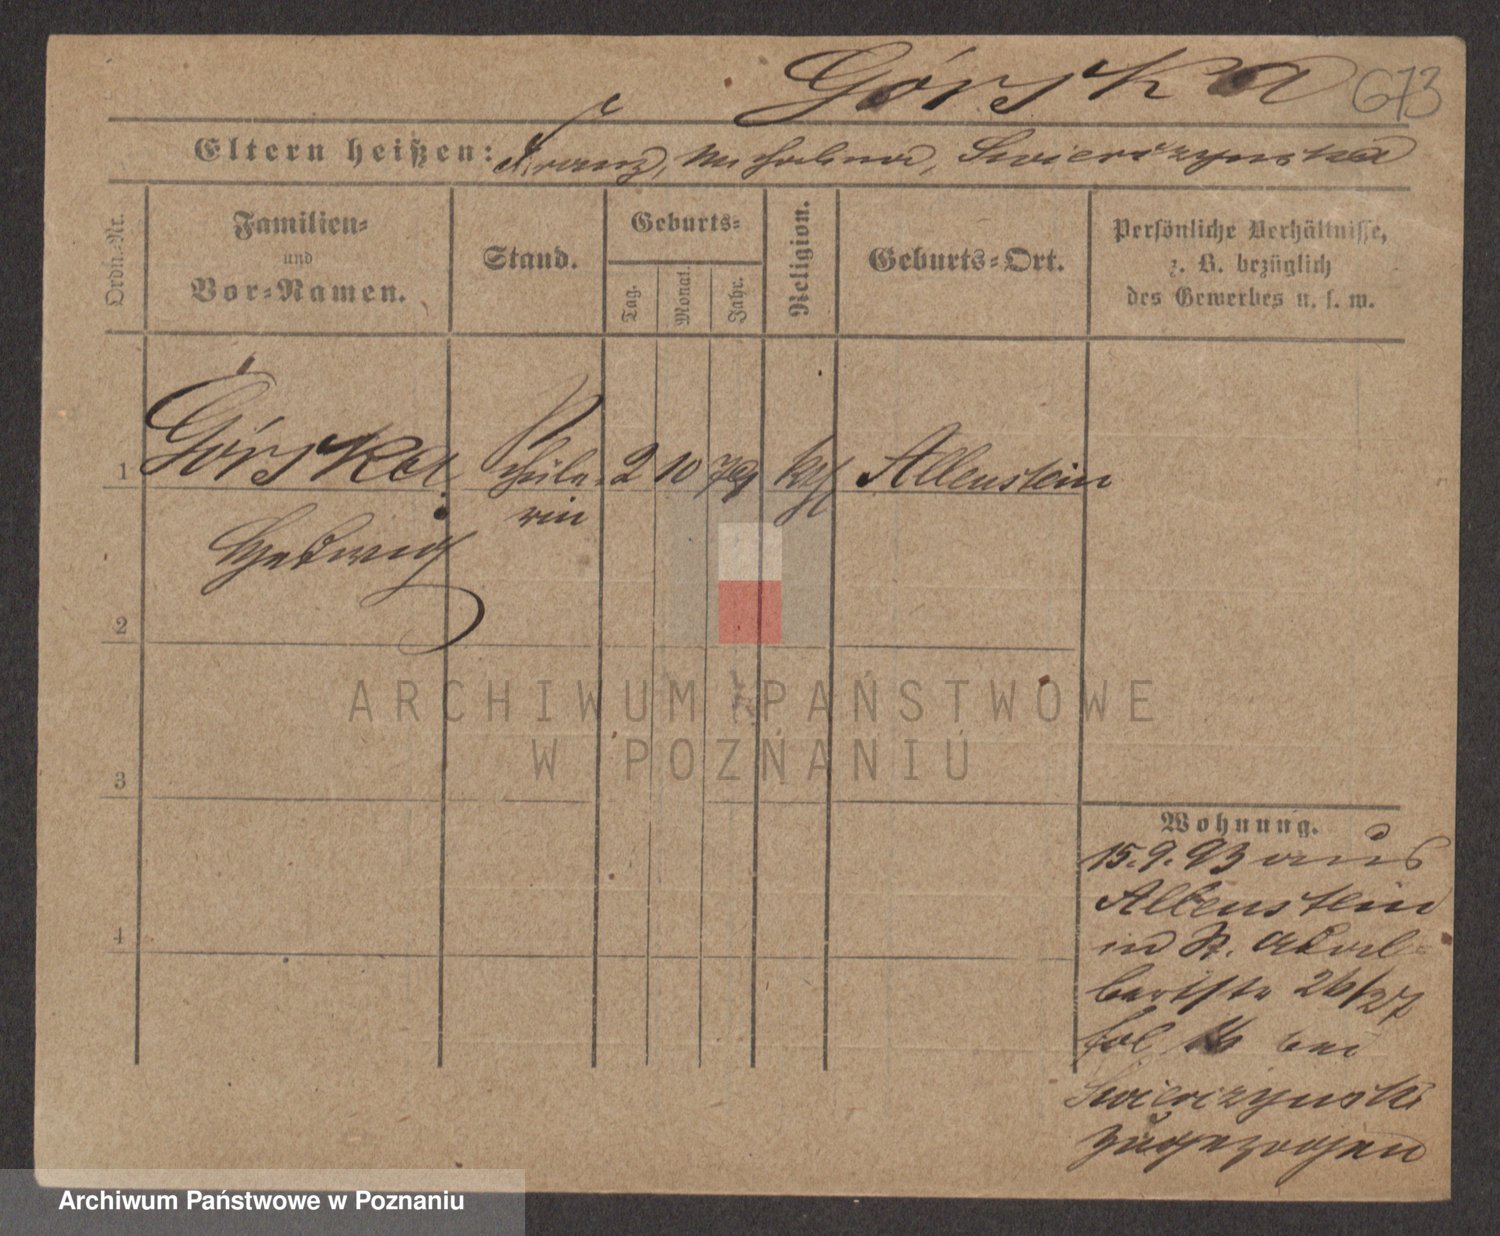 Górska 673
Eltern heißen: Franz, Michalina, Swierczynska
Ordn.-Nr.
Familien-
und
Vor-Namen.
Stand.
Geburts-
Tag.
Monat.
Jahr.
Religion.
Geburts-Ort.
Persönliche Verhältnisse,
z. B. bezüglich
des Gewerbes u. s. w.
1 Górska Schüle- 2 10 79 kth Allenstein
rin
Hedwig
2
ARCHIWUM PAŃSTWOWE
W POZNANIU
3
Wohnung.
15.9.93 aus
Allenstein
in St. Adal-
bertstr 26/27
fol 16 bei
Swierczynski
zugezogen
4
Archiwum Państwowe w Poznaniu